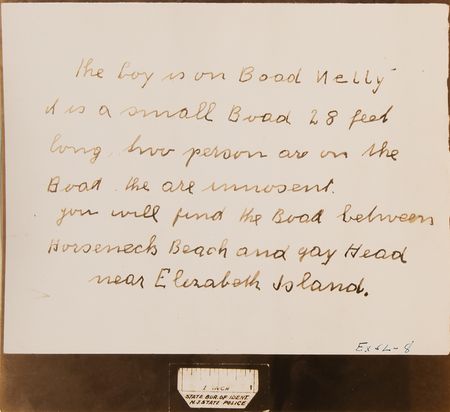 the boy is on Boad Nelly
it is a small Boad 28 feet
long, two person are on the
Boad. the are innosent.
you will find the Boad between
Horseneck Beach and gay Head
near Elizabeth Island.
Ex S-8
1 INCH
STATE BUR. OF IDENT.
N.J. STATE POLICE